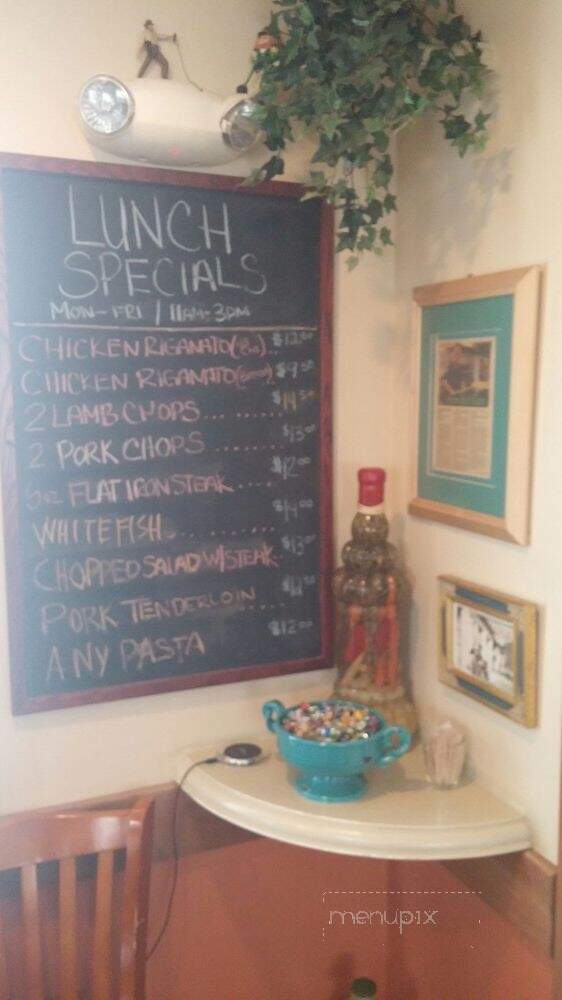 LUNCH
SPECIALS
MON-FRI / 11AM-3PM
CHICKEN RIGANATO( ).. $12.00
CHICKEN RIGANATO( ). $9.50
2 LAMB CHOPS....... $14.50
2 PORK CHOPS ........ $13.00
FLAT IRON STEAK.... $12.00
WHITEFISH........... $14.00
CHOPPED SALAD W/STEAK. $13.00
PORK TENDERLOIN.....
ANY PASTA $12.00
menupix